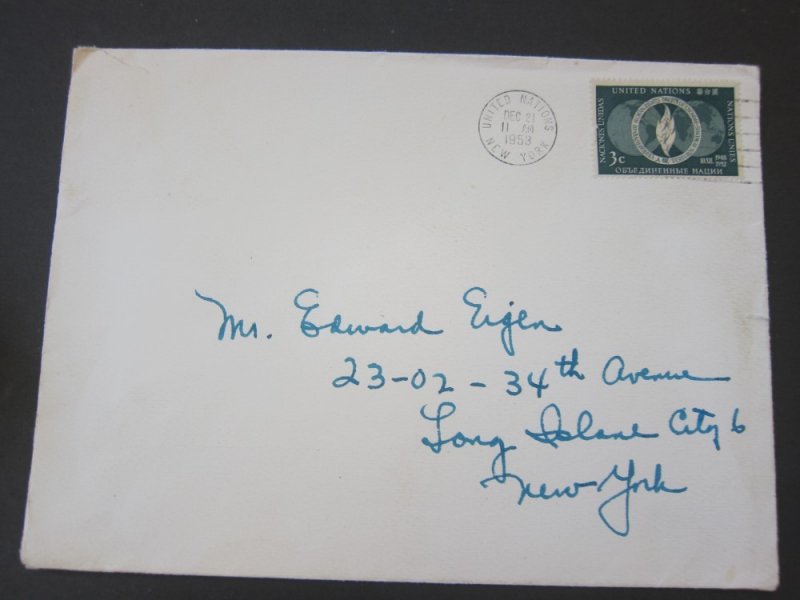 UNITED NATIONS
DEC 21
11 AM
1953
NEW YORK
UNITED NATIONS
NACIONES UNIDAS
NATIONS UNIES
3c
1948
1952
ОБЪЕДИНЕННЫЕ НАЦИИ
Mr. Edward Eigen
23-02 - 34th Avenue
Long Island City 6
New York